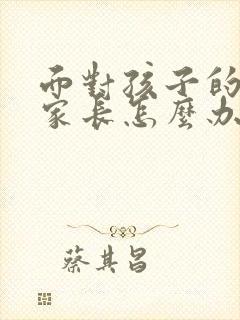 而對孩子的
家長怎麼办
蔡其昌